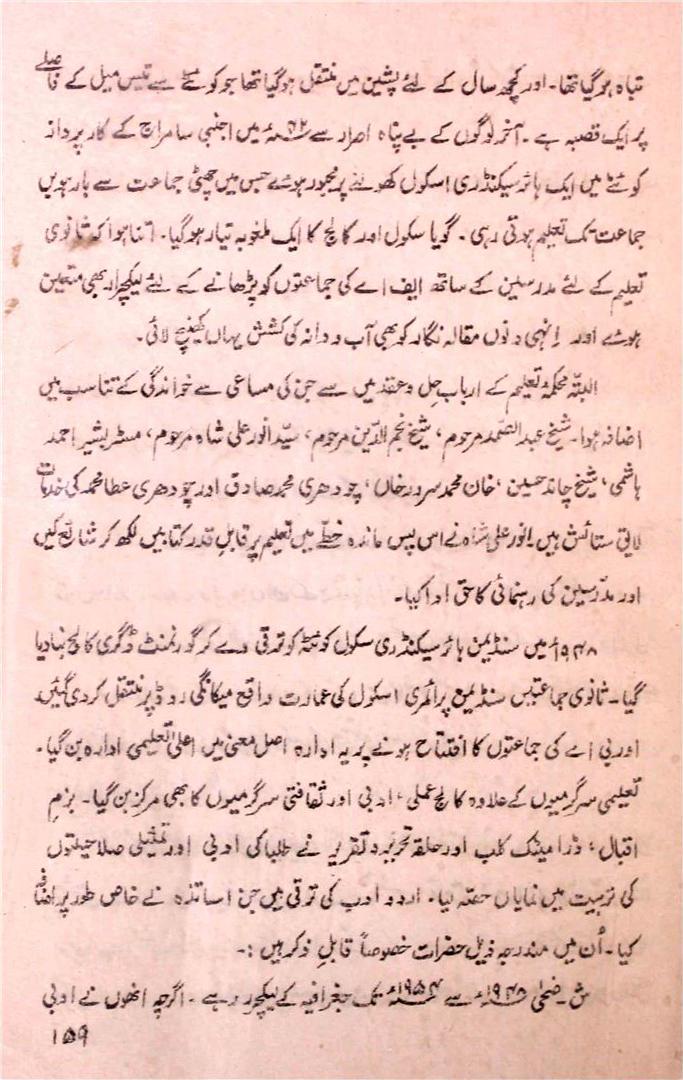 تباہ ہو گیا تھا۔ اور کچھ سال کے لئے پشین میں منتقل ہو گیا تھا جو کوئٹے سے تیس میل کے فاصلے
پر ایک قصبہ ہے۔ آخر لوگوں کے بے پناہ اصرار سے ۴۲ء میں اجنبی سامراج کے کارپردانہ
کوئٹے میں ایک ہائر سیکنڈری اسکول کھولنے پر مجبور ہوئے جس میں چھٹی جماعت سے بارہویں
جماعت تک تعلیم ہوتی رہی۔ گویا سکول اور کالج کا ایک ملغوبہ تیار ہو گیا۔ اتنا ہوا کہ ثانوی
تعلیم کے لئے مدرسین کے ساتھ ایف اے کی جماعتوں کو پڑھانے کے لئے لیکچرار بھی متعین
ہوئے اور اِنہی دنوں مقالہ نگار کو بھی آب و دانہ کی کشش یہاں کھینچ لائی۔
البتہ محکمۂ تعلیم کے اربابِ حل و عقد میں سے جن کی مساعی سے خواندگی کے تناسب میں
اضافہ ہوا۔ شیخ عبدالصمد مرحوم، شیخ نجم الدین مرحوم، سیّد انور علی شاہ مرحوم، مسٹر بشیر احمد
ہاشمی، شیخ چاند حسین، خان محمد سرور خاں، چودھری محمد صادق اور چودھری عطا محمد کی خدمات
لائق ستائش ہیں۔ انور علی شاہ نے اس پس ماندہ خطّے میں تعلیم پر قابلِ قدر کتابیں لکھ کر شائع کیں
اور مدرّسین کی رہنمائی کا حق ادا کیا۔
۱۹۴۸ء میں سنڈیمن ہائر سیکنڈری سکول کوئٹہ کو ترقی دے کر گورنمنٹ ڈگری کالج بنا دیا
گیا۔ ثانوی جماعتیں سنڈیمن پرائمری اسکول کی عمارت واقع میکانگی روڈ پر منتقل کر دی گئیں۔
اور بی اے کی جماعتوں کا افتتاح ہونے پر یہ ادارہ اصل معنی میں اعلیٰ تعلیمی ادارہ بن گیا۔
تعلیمی سرگرمیوں کے علاوہ کالج عملی، ادبی اور ثقافتی سرگرمیوں کا بھی مرکز بن گیا۔ بزمِ
اقبال، ڈرامیٹک کلب اور حلقہ تحریر و تقریر نے طلبا کی ادبی اور تمثیلی صلاحیتوں
کی تربیت میں نمایاں حصّہ لیا۔ اردو ادب کی ترقی میں جن اساتذہ نے خاص طور پر اضافہ
کیا۔ اُن میں مندرجہ ذیل حضرات خصوصاً قابلِ ذکر ہیں :۔
ش۔ ضحیٰ ۱۹۴۸ء سے ۱۹۵۴ء تک جغرافیہ کے لیکچرر رہے۔ اگرچہ انھوں نے ادبی
۱۵۹